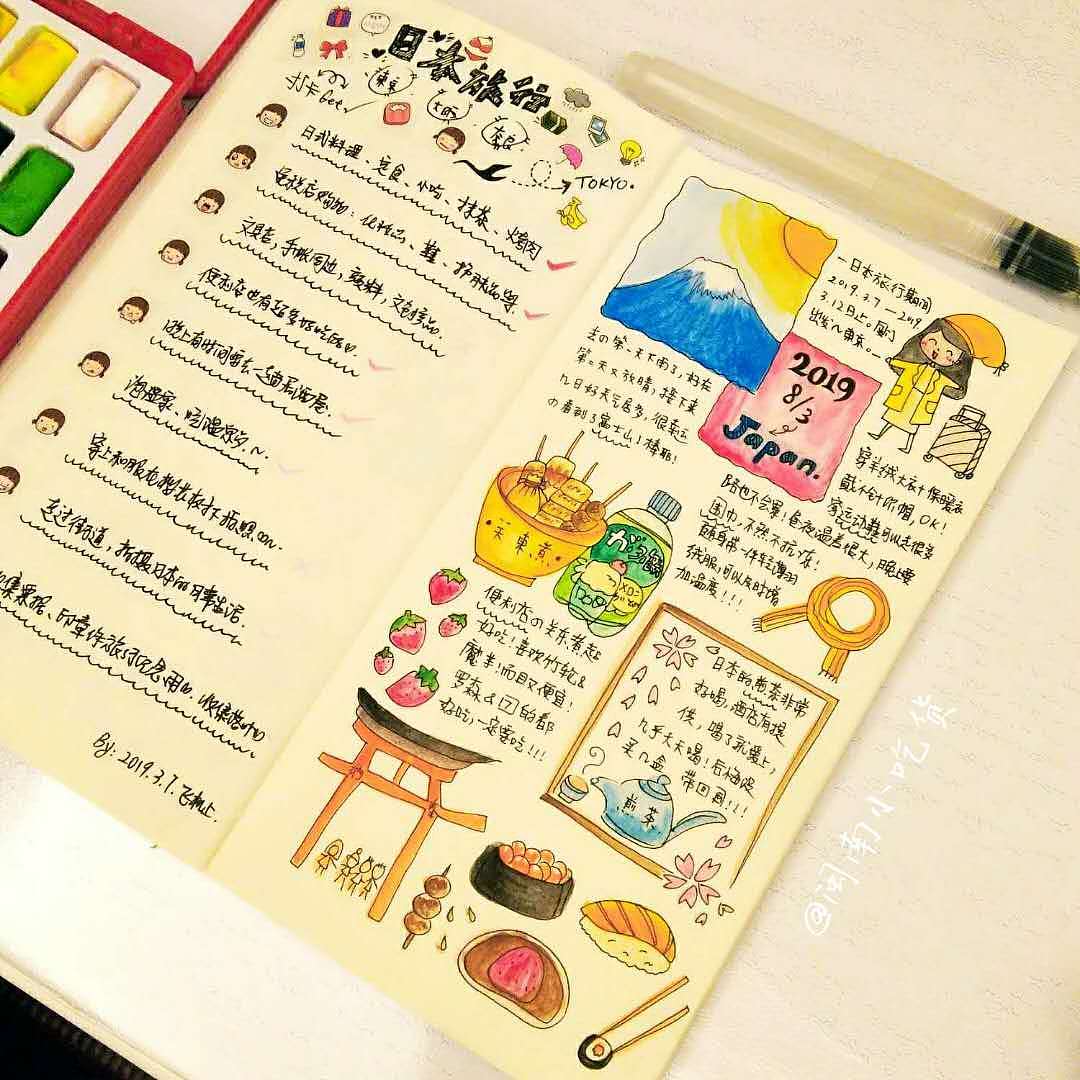 日本旅行
打卡Get✓
東京
大阪
奈良
TOKYO.
日式料理、定食、小吃、抹茶、烤肉
免税店购物：化妆品、鞋、护肤品等.
文具店，手帐周边，颜料，文创品
便利店也有超多好吃的.
晚上有时间要去一趟居酒屋.
泡温泉、吃温泉夕.~
穿上和服也想去枫下拍照.
走过街道，拍摄日本的日常生活.
集票据、印章作旅行纪念用
By: 2019.3.7.飞机上.
一日本旅行期间
2019.3.7 — 2019.
3.12日止。厦门
出发～東京.
去の第一天下雨了，好在
第二天又放晴，接下来
几日好天气居多，很幸运
の看到了富士山！棒耶！
2019
8/3
Japan.
穿羊绒大衣+保暖衣
戴个针织帽，OK！
穿运动鞋可以走很多
路也不会累！昼夜温差很大，晚上要
围巾，不然不抗冻！
随身带一件轻薄羽
绒服，可以及时增
加温度！！！
关東煮
メロン
便利店の关东煮超
好吃！喜欢竹轮&
魔芋！而且又便宜！
罗森&7的都
好吃，一定要吃！！！
日本的煎茶非常
好喝，酒店有提
供，喝了就爱上，
几乎天天喝！后悔没
买几盒 带回国！！！
煎茶
@闽南小吃货